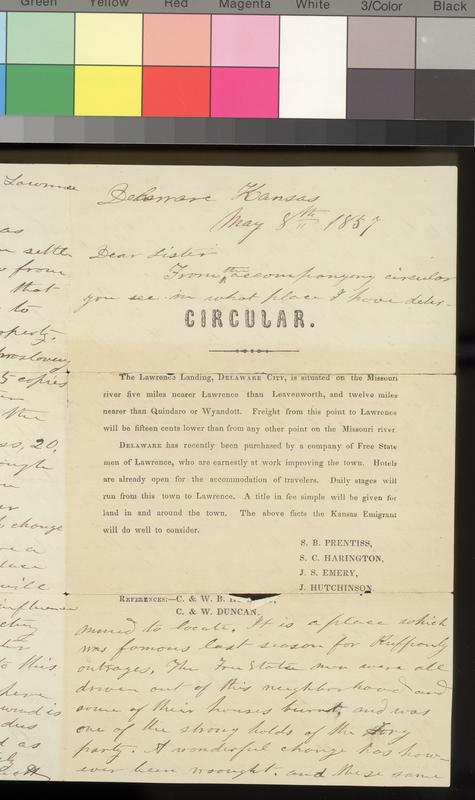 Green Yellow Red Magenta White 3/Color Black
Lawrence
as
settle
from
that
to
property,
proslavery
copies
the
20,
change
a
will
influence
to this
here
as
Delaware Kansas
May 8th 1857
Dear Sister
From the accompanying circular
you see in what place I have deter-
CIRCULAR.
The Lawrence Landing, DELAWARE CITY, is situated on the Missouri
river five miles nearer Lawrence than Leavenworth, and twelve miles
nearer than Quindaro or Wyandott. Freight from this point to Lawrence
will be fifteen cents lower than from any other point on the Missouri river
DELAWARE has recently been purchased by a company of Free State
men of Lawrence, who are earnestly at work improving the town. Hotels
are already open for the accommodation of travelers. Daily stages will
run from this town to Lawrence. A title in fee simple will be given for
land in and around the town. The above facts the Kansas Emigrant
will do well to consider.
S. B. PRENTISS,
S. C. HARINGTON,
J. S. EMERY,
J. HUTCHINSON.
REFERENCES:—C. & W. B.
C. & W. DUNCAN.
mined to locate. It is a place which
was famous last season for Ruffianly
outrages. The Free State men were all
driven out of this neighborhood and
some of their houses burnt, and was
one of the strong holds of the
party. A wonderful change has how-
ever been wrought. and these same